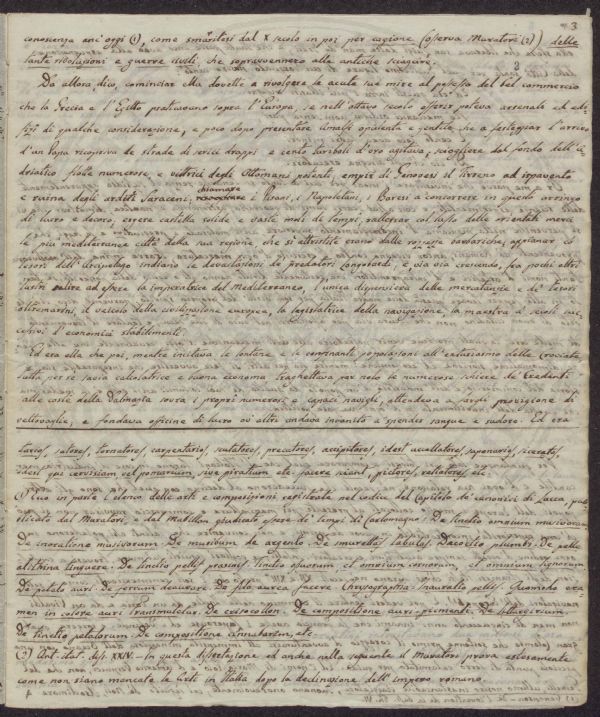 3
conoscenza anc'oggi (1), come smarritesi dal X secolo in poi per cagione (osserva Muratori (2)) delle
tante rivoluzioni e guerre civili che sopravvennero alle antiche sciagure.
Da allora, dico, cominciar Ella dovette a rivolgere le acute sue mire al possesso del bel commercio
che la Grecia e l'Egitto praticavano sopra l'Europa, se nell'ottavo secolo offerir poteva arsenale ed
di qualche considerazione, e poco dopo presentare opulenta e gentile che a festeggiar l'arrivo
d'un Papa ricopriva le strade di serici drappi e cento turiboli d'oro agitava; sciogliere dal fondo dell'A-
driatico flotte numerose, e vittrici degli Ottomani potenti, empire di Genovesi il Tirreno ad irpavento
e ruina degli arditi Saraceni; chiamare i Pisani, i Napoletani, i Baresi a concorrere in questo arringo
di lucro e decoro, ergere castella solide e vaste moli di tempi, rallegrar col lusso delle orientali merci
le più mediterranee città della sua regione, che si attristite erano dalle barbariche, appianar co'
tesori dell'Arcipelago indiano le devastazioni de' predatori, e via via crescendo, fra pochi altri
lustri salire ad essere la imperatrice del Mediterraneo, l'unica dispensiera delle mercatanzie e de' tesori
oltremarini, il veicolo della civilizzazione europea, la legislatrice della navigazione, la maestra a' secoli suc-
cessivi d'economici stabilimenti.
Ed era ella che poi, mentre incitava le lontane e le confinanti popolazioni all'entusiasmo delle Crociate,
tutta per se sacra calcolatrice e buona economa traghettava per nolo le numerose schiere de' Credenti
alle coste della Dalmazia sovra i propri numerosi e capaci navigli, attendeva a larga provigione di
vettovaglie, e fondava officine di lucro ov'altri andava incontro a spender sangue e sudore. Ed era
tarios, sutores, tornatores, carpentarios, scutatores, piscatores, accipitores, idest aucellatores, saponarios, siceratores,
idest qui cervisiam vel pomarium, sive piratium etc. facere sciant, pistores, retiatores, etc.
(1) Ve n'è in parte l'elenco delle arti e composizioni registrate nel codice del Capitolo de' canonici di Lucca, pub-
blicato dal Muratori e dal Mabillon giudicato essere di tempi di Carlomagno: De tinctio omnium musivorum.
De inoratione musivorum. De musivum de argento. De Tabulas. De coctio plumbi. De pelle
alithina tinguere. De tinctio pellis prasinis. Tinctio ossuorum et omnium cornorum, et omnium lignorum
De petalo auri. De ferrum deaurare. De fila aurea facere. Chrysographia. Inauratio pellis. Quomodo era
men in colore auri transmutetur. De crisocollon. De compositione auri-pimento. De
De tinctio petalorum. De compositione cinnabarim, etc.
(2) Ant. Ital. diss. XXIV. In questa dissertazione ed anche nella seguente il Muratori prova estesamente
come non siano mancate le Arti in Italia dopo la declinazione dell'impero romano.